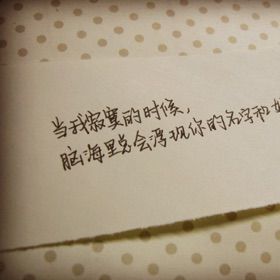 当我寂寞的时候，
脑海里总会浮现你的名字和